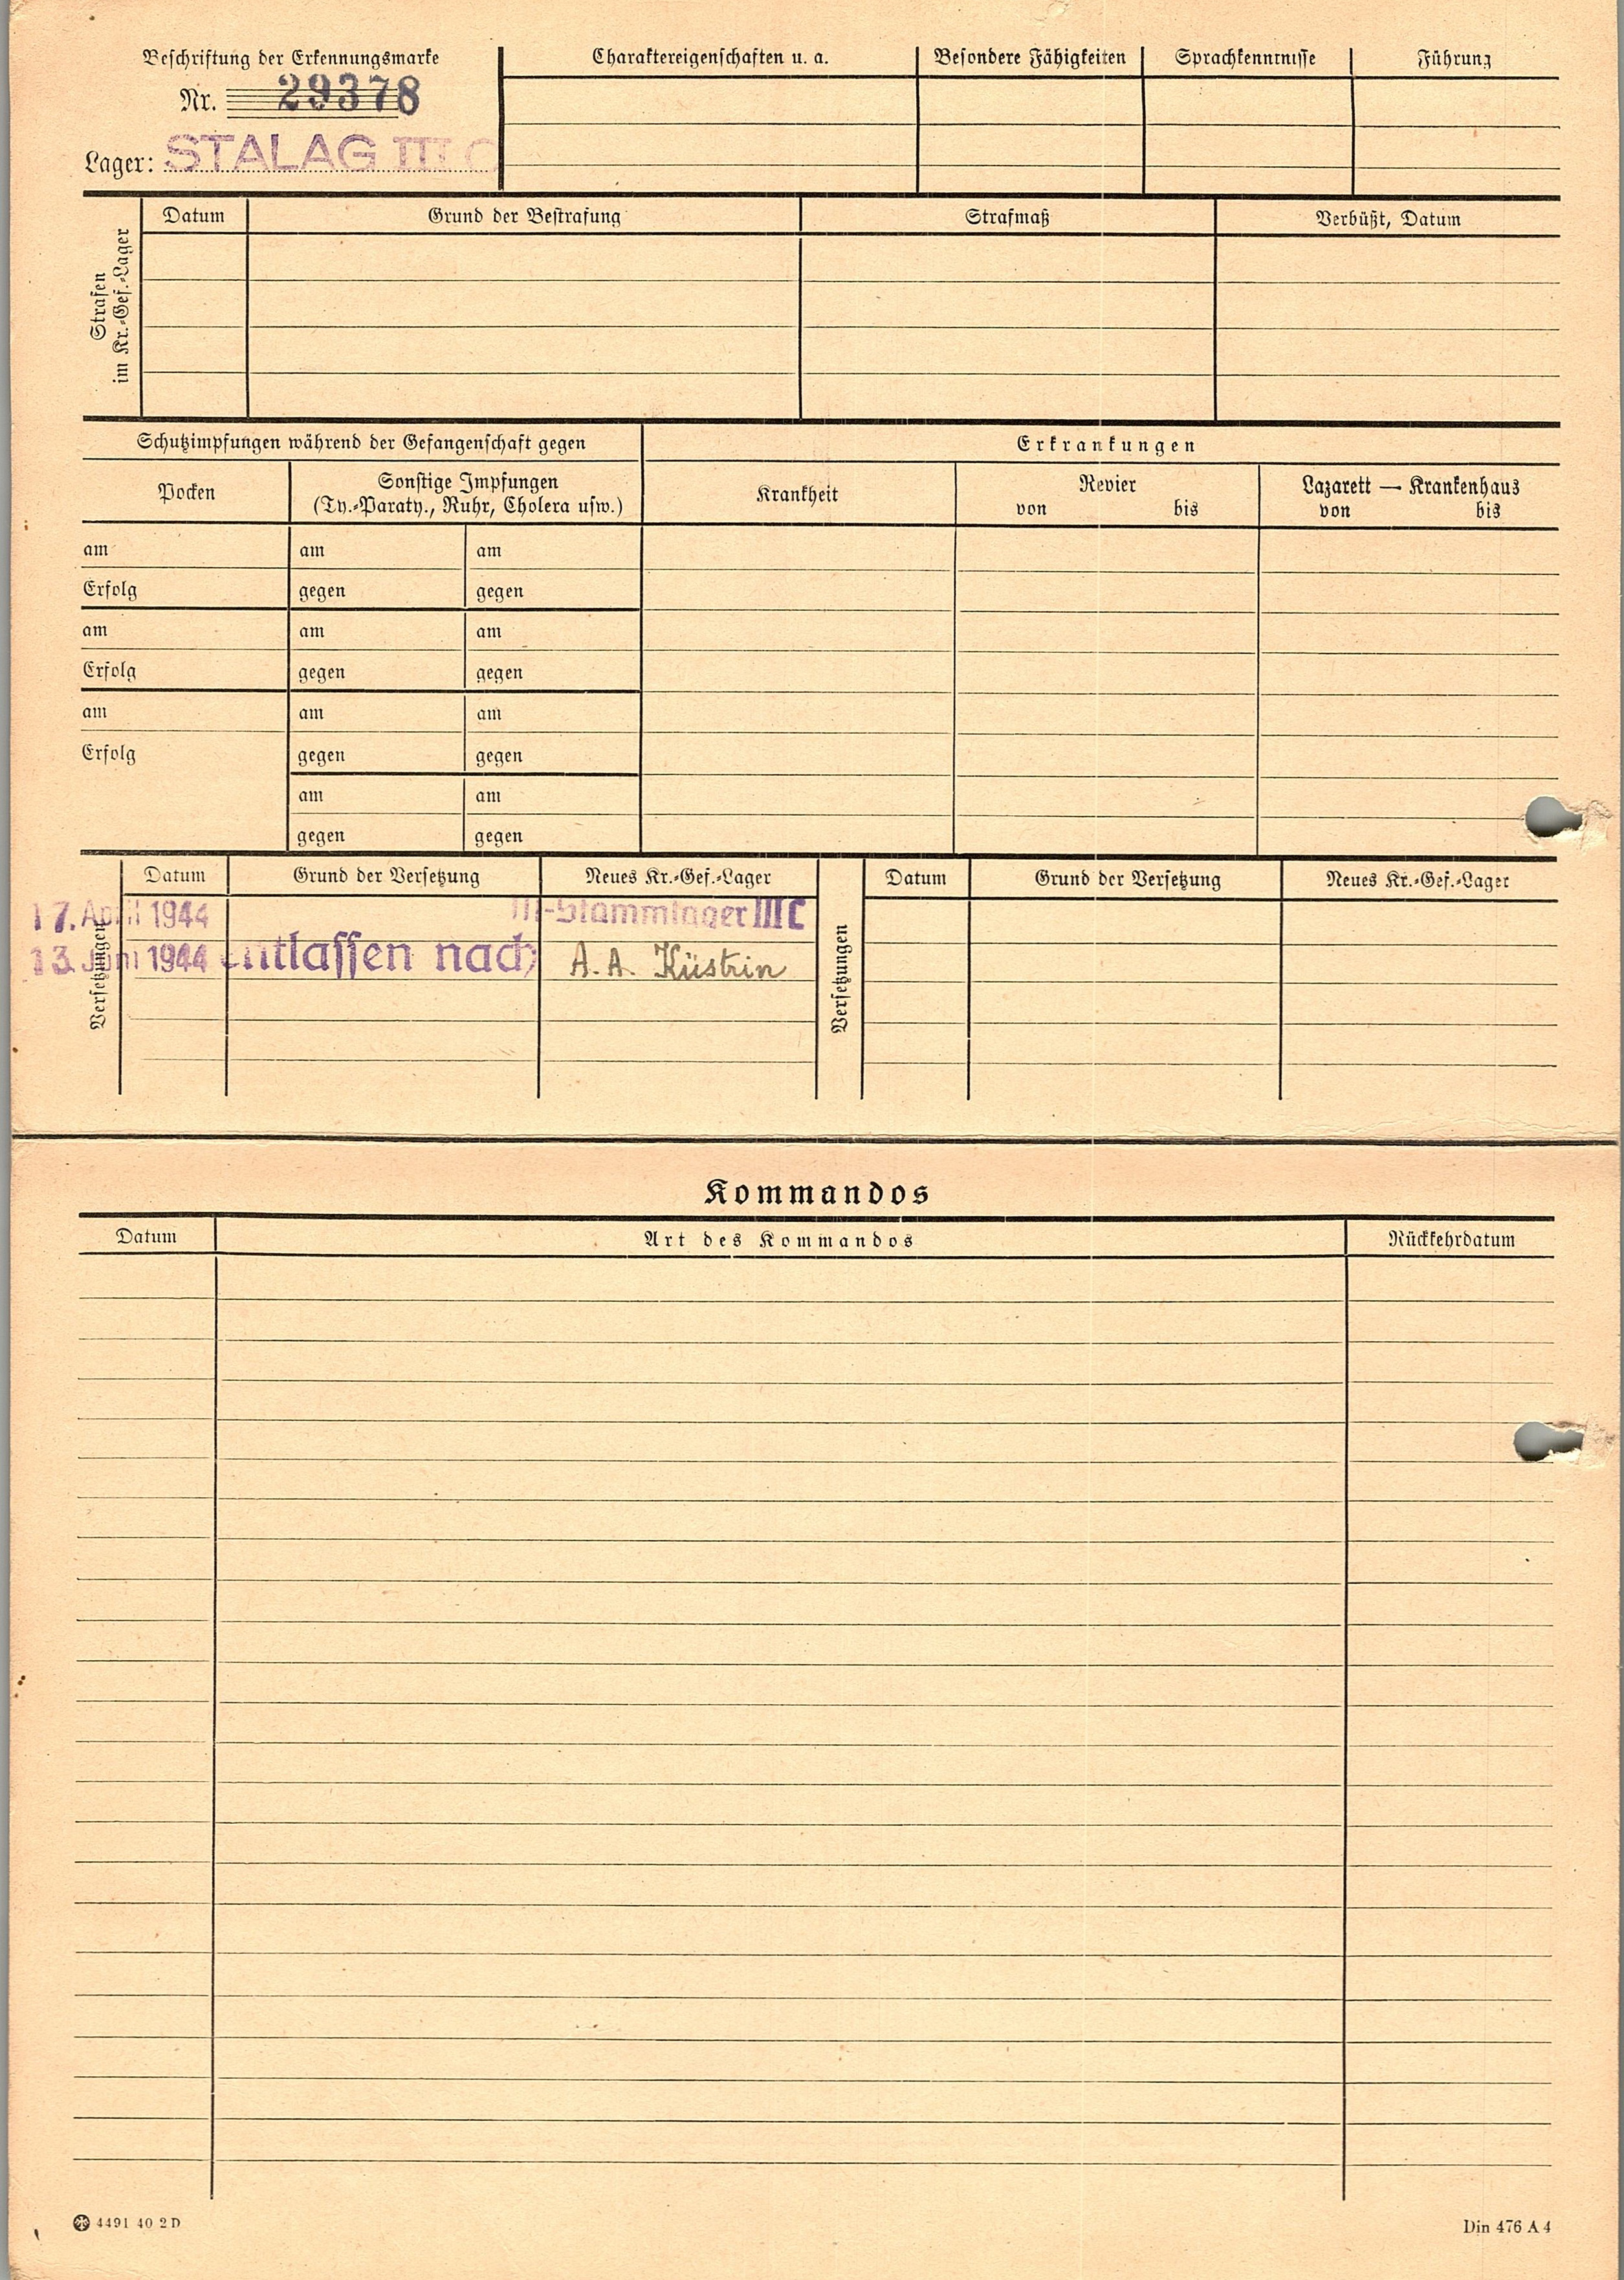 Beschriftung der Erkennungsmarke
Nr. 29378
Lager: STALAG III C
Charaktereigenschaften u. a.
Besondere Fähigkeiten
Sprachkenntnisse
Führung
Strafen
im Kr.-Gef.-Lager
Datum
Grund der Bestrafung
Strafmaß
Verbüßt, Datum
Schutzimpfungen während der Gefangenschaft gegen
Erkrankungen
Pocken
Sonstige Impfungen
(Ty.-Paraty., Ruhr, Cholera usw.)
Krankheit
Revier
von bis
Lazarett — Krankenhaus
von bis
am am am
Erfolg gegen gegen
am am am
Erfolg gegen gegen
am am am
Erfolg gegen gegen
am am
gegen gegen
Versetzungen
Datum Grund der Versetzung Neues Kr.-Gef.-Lager
17. April 1944 M-Stammlager III C
13. Juni 1944 entlassen nach A. A. Küstrin
Versetzungen
Datum Grund der Versetzung Neues Kr.-Gef.-Lager
Kommandos
Datum Art des Kommandos Rückkehrdatum
4491 40 2 D
Din 476 A 4